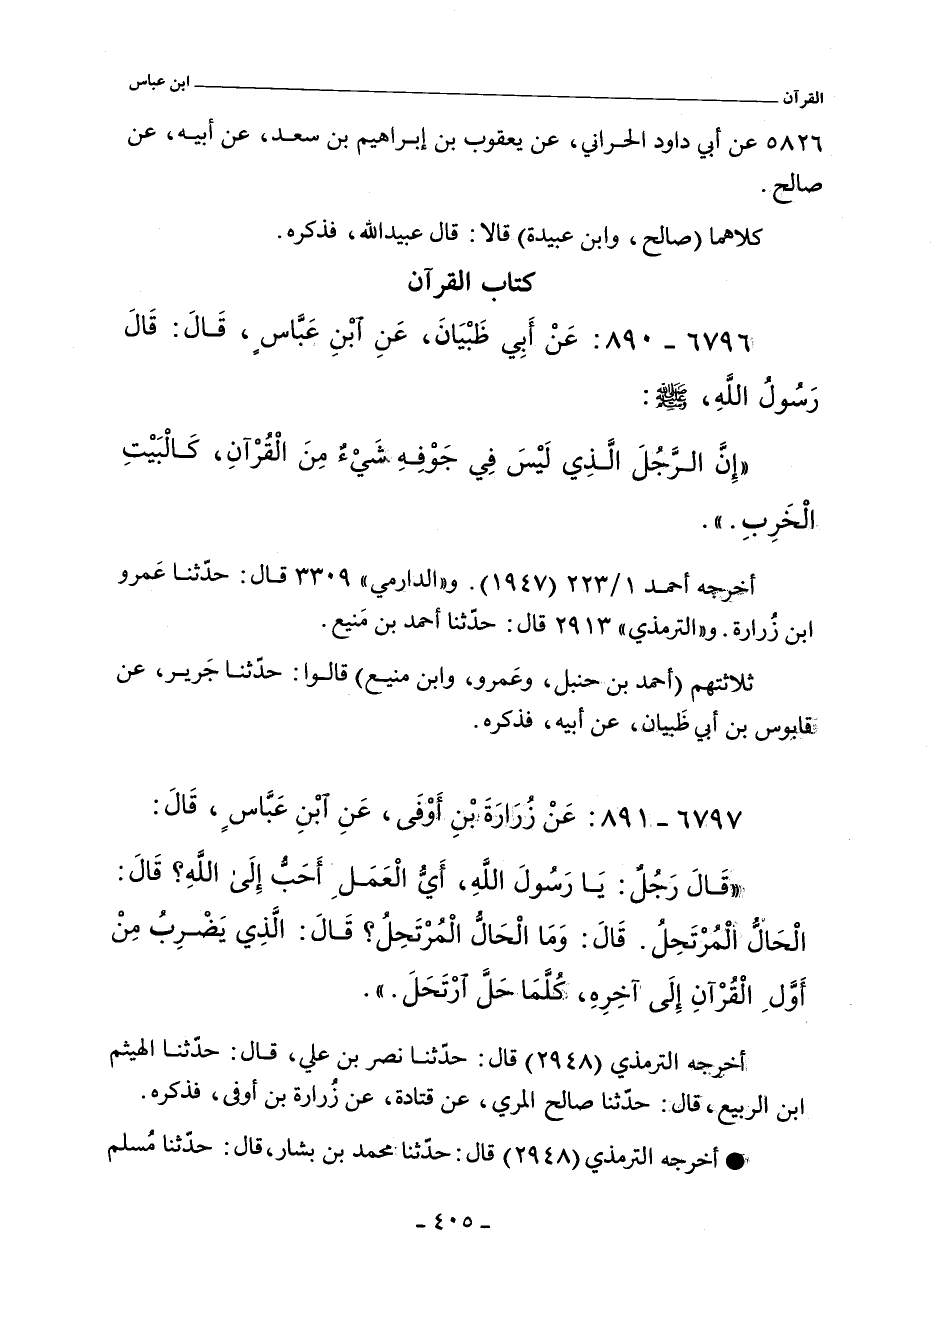 القرآن ـــــ ابن عباس
٥٨٢٦ عن أبي داود الحراني، عن يعقوب بن إبراهيم بن سعد، عن أبيه، عن
صالح.
كلاهما (صالح، وابن عبيدة) قالا: قال عبيدالله، فذكره.
كتاب القرآن
٦٧٩٦ - ٨٩٠: عَنْ أَبِي ظَبْيَانَ، عَنِ ٱبْنِ عَبَّاسٍ، قَالَ: قَالَ
رَسُولُ اللَّهِ، ﷺ:
«إِنَّ الرَّجُلَ الَّذِي لَيْسَ فِي جَوْفِهِ شَيْءٌ مِنَ الْقُرْآنِ، كَالْبَيْتِ
الْخَرِبِ.».
أخرجه أحمد ١/٢٢٣ (١٩٤٧). و«الدارمي» ٣٣٠٩ قال: حدّثنا عَمرو
ابن زُرارة. و«الترمذي» ٢٩١٣ قال: حدّثنا أحمد بن مَنيع.
ثلاثتهم (أحمد بن حنبل، وعَمرو، وابن منيع) قالوا: حدّثنا جَرير، عن
قابوس بن أبي ظَبيان، عن أبيه، فذكره.
٦٧٩٧ - ٨٩١: عَنْ زُرَارَةَ بْنِ أَوْفَى، عَنِ ٱبْنِ عَبَّاسٍ، قَالَ:
«قَالَ رَجُلٌ: يَا رَسُولَ اللَّهِ، أَيُّ الْعَمَلِ أَحَبُّ إِلَىٰ اللَّهِ؟ قَالَ:
الْحَالُّ الْمُرْتَحِلُ. قَالَ: وَمَا الْحَالُّ الْمُرْتَحِلُ؟ قَالَ: الَّذِي يَضْرِبُ مِنْ
أَوَّلِ الْقُرْآنِ إِلَى آخِرِهِ، كُلَّمَا حَلَّ ٱرْتَحَلَ.».
أخرجه الترمذي (٢٩٤٨) قال: حدّثنا نصر بن علي، قال: حدّثنا الهيثم
ابن الربيع، قال: حدّثنا صالح المري، عن قتادة، عن زُرارة بن أوفى، فذكره.
● أخرجه الترمذي (٢٩٤٨) قال: حدّثنا محمد بن بشار، قال: حدّثنا مُسلم
- ٤٠٥ -